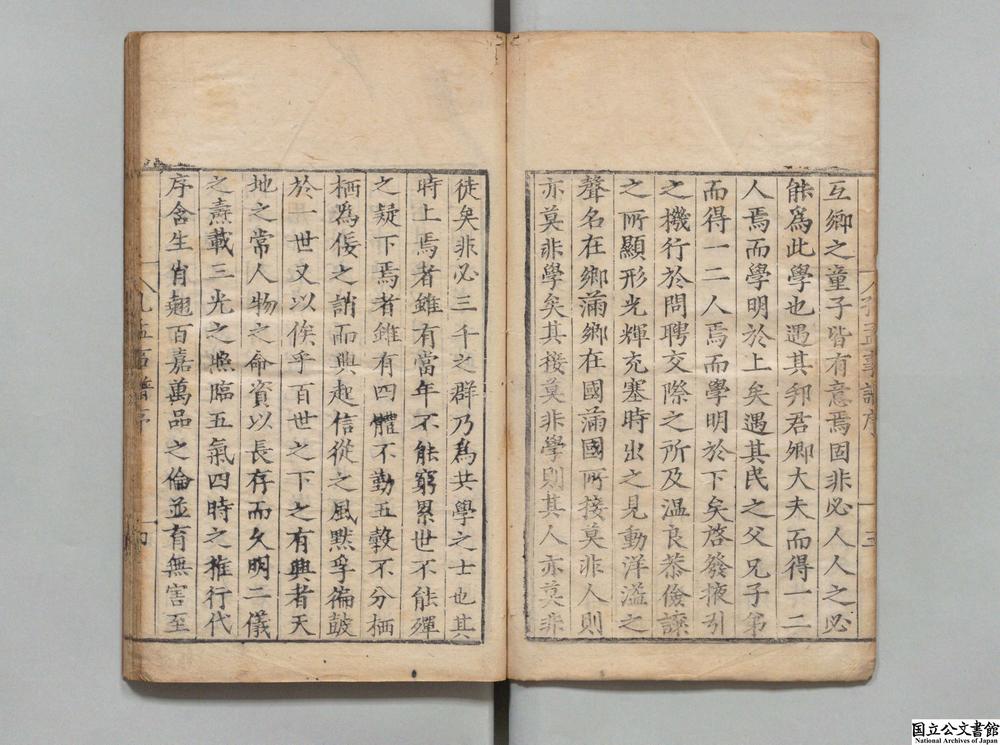 互鄉之童子皆有意焉固非必人人之必
能爲此學也遇其邦君卿大夫而得一二
人焉而學明於上矣遇其民之父兄子弟
而得一二人焉而學明於下矣啓發掖引
之機行於問聘交際之所及溫良恭儉讓
之所顯形光輝充塞時出之見動洋溢之
聲名在鄉滿鄉在國滿國所接莫非人則
亦莫非學矣其接莫非學則其人亦莫非
徒矣非必三千之群乃爲共學之士也其
時上焉者雖有當年不能窮累世不能殫
之疑下焉者雖有四體不勤五穀不分栖
栖爲佞之誚而興起信從之風默孚徧皷
於一世又以俟乎百世之下之有興者天
地之常人物之命資以長存而久明二儀
之燾載三光之照臨五氣四時之推行代
序含生肖翹百嘉萬品之倫並育無害至
國立公文書館
National Archives of Japan